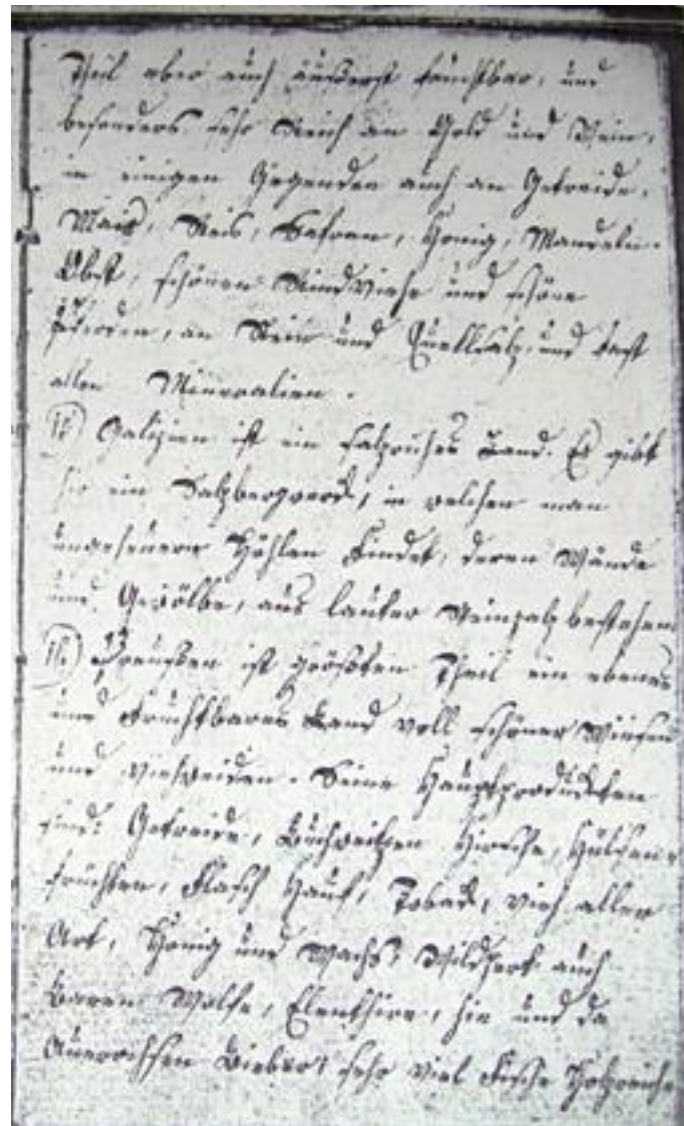 Theil aber auch äußerst fruchtbar, und
besonders sehr Reich an Gold und Wein,
in einigen Gegenden auch an Getreide,
Mais, Reis, Safran, Honig, Mandeln.
Obst, schönen Rindviehe und schöne
Pferden, an Stein und Quellsalz, und fast
allen Mineralien.
15) Galizien ist ein salzreiches Land. Es gibt
hir ein Salzbergwerk, in welchen man
ungeheuern Höhlen findet, deren Wände
und Gewölbe, aus lauter Steinsalz bestehem
16.) Preußen ist größten Theil ein ebenes
und Fruchtbares Land voll schöner Wiesen
und Viehweiden. Seine Hauptprodukten
sind: Getreide, Buchweitzen Hirsche, Hülsen
früchten, Flasch Hanf, Toback, Vieh aller
Art, Honig und Wachs, Wildpret auch
Baren Wölfe, Elenthire, hin und da
Auerochsen Bieber, sehr viel Fische Holzreiche